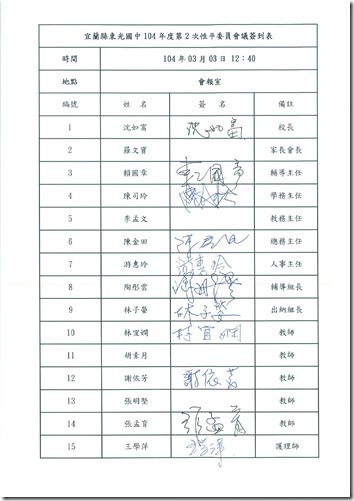 宜蘭縣東光國中 104 年度第 2 次性平委員會議簽到表
時間 104 年 03 月 03 日 12:40
地點 會報室
編號 姓 名 簽 名 備註
1 沈如富 沈如富 校長
2 羅文寶 家長會長
3 賴國章 輔導主任
4 陳司玲 學務主任
5 李孟文 教務主任
6 陳金田 總務主任
7 游惠玲 人事主任
8 陶彤雲 輔導組長
9 林子馨 林子馨 出納組長
10 林宜嫺 林宜嫺 教師
11 胡素月 教師
12 謝依芳 謝依芳 教師
13 張明堅 教師
14 張孟育 張孟育 教師
15 王學萍 護理師